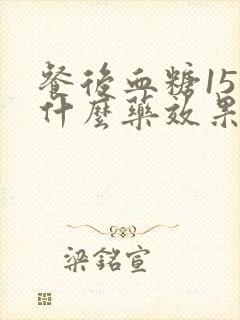 餐後血糖15
什麼藥效果
梁銘宣